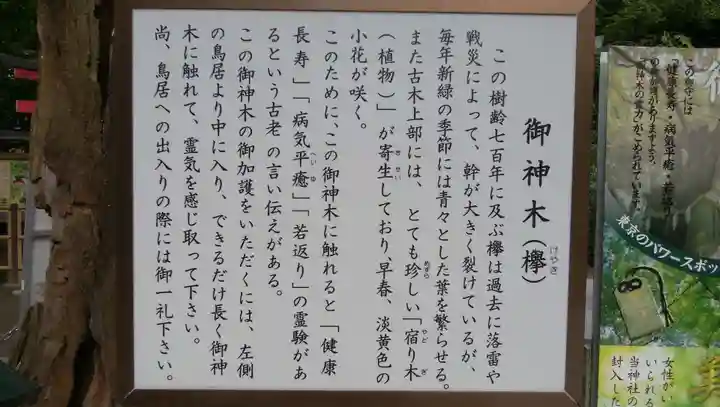 御神木(欅)
けやき
この樹齢七百年に及ぶ欅は過去に落雷や
戦災によって、幹が大きく裂けているが、
毎年新緑の季節には青々とした葉を繁らせる。
また古木上部には、とても珍しい「宿り木
めずら
やどぎ
(植物)」が寄生しており、早春、淡黄色の
きせい
小花が咲く。
このために、この御神木に触れると「健康
長寿」「病気平癒」「若返り」の霊験があ
へいゆ
るという古老の言い伝えがある。
この御神木の御加護をいただくには、左側
の鳥居より中に入り、できるだけ長く御神
木に触れて、霊気を感じ取って下さい。
尚、鳥居への出入りの際には御一礼下さい。
この御守には
「健康長寿・病気平癒・若返り」
御神木の霊力がこめられています。
東京のパワースポッ
女性がい
いられる
当神社の
封入した